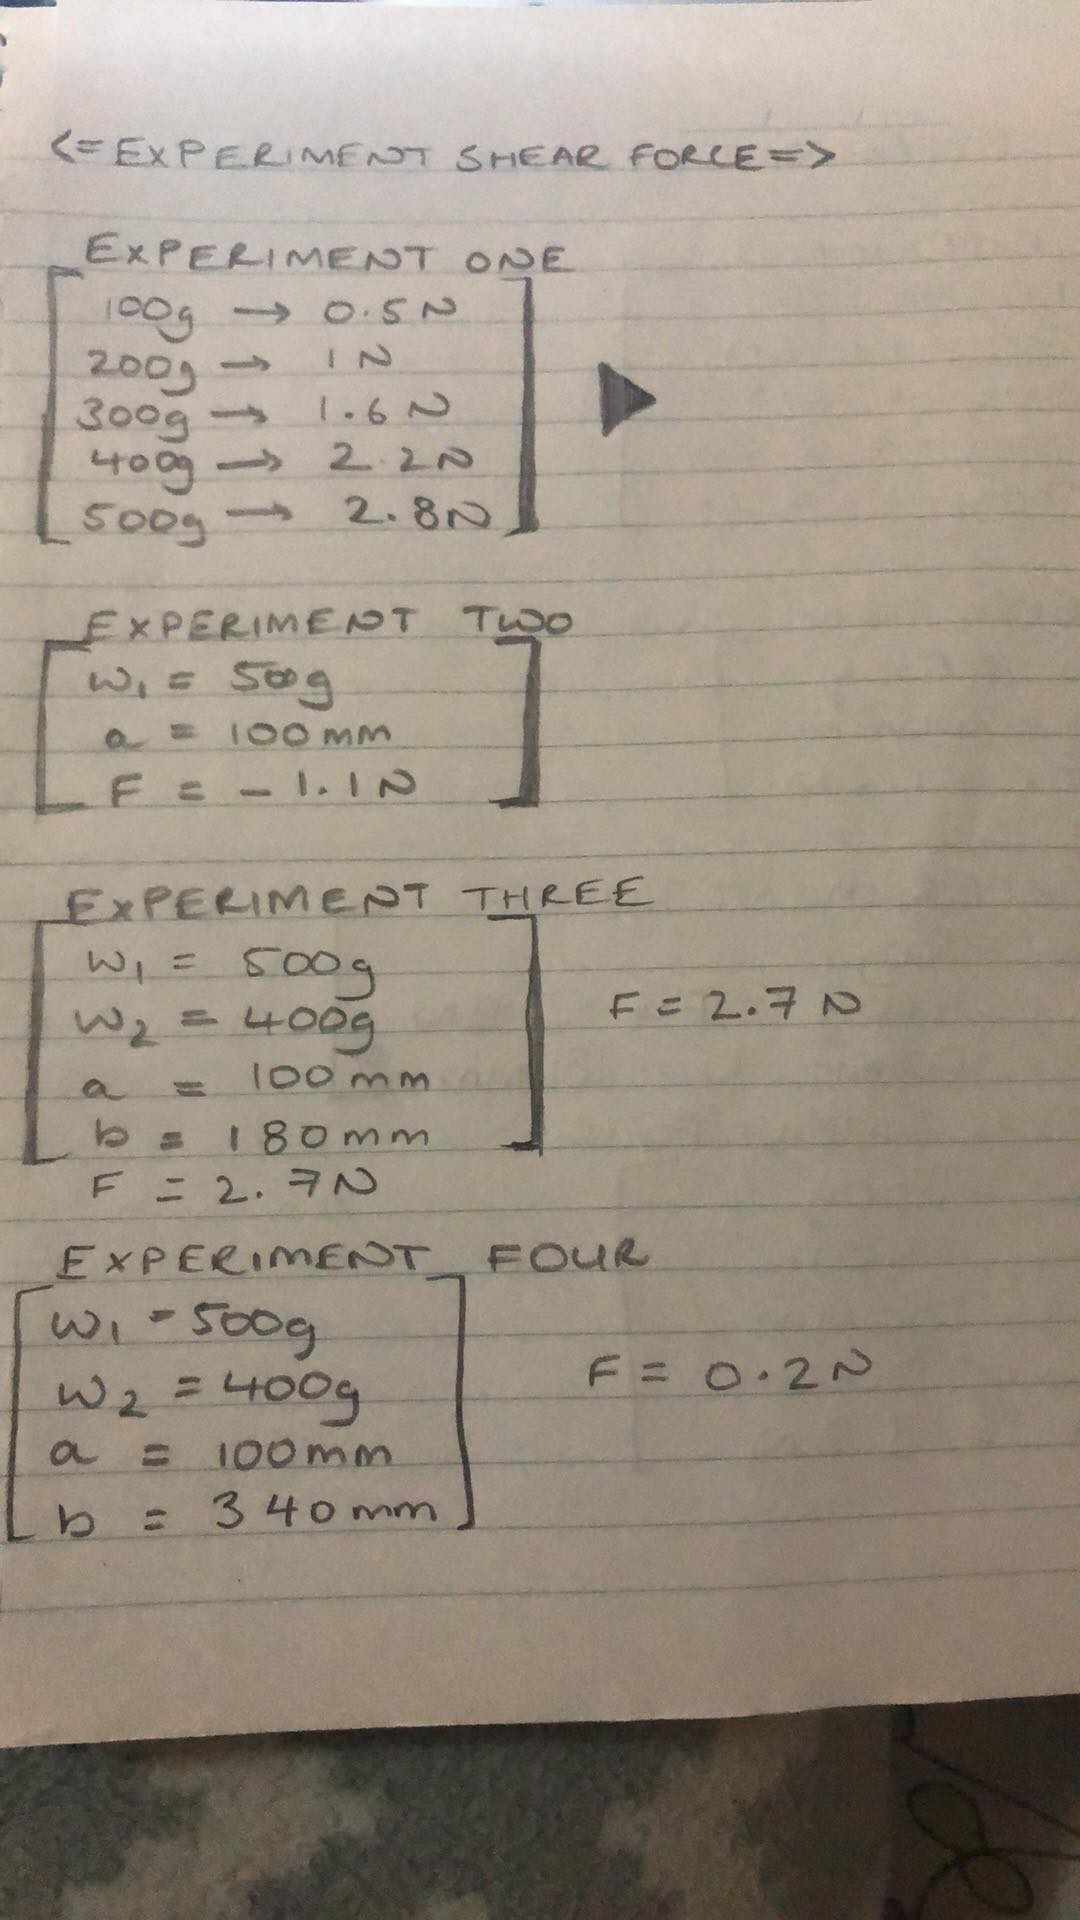 <=EXPERIMENT SHEAR FORCE=>
EXPERIMENT ONE
100g → 0.5N
200g → 1N
300g → 1.6N
400g → 2.2N
500g → 2.8N
EXPERIMENT TWO
W₁ = 500g
a = 100mm
F = -1.1N
EXPERIMENT THREE
W₁ = 500g
W₂ = 400g
a = 100mm
b = 180mm
F = 2.7N
F = 2.7N
EXPERIMENT FOUR
W₁ = 500g
W₂ = 400g
a = 100mm
b = 340mm
F = 0.2N